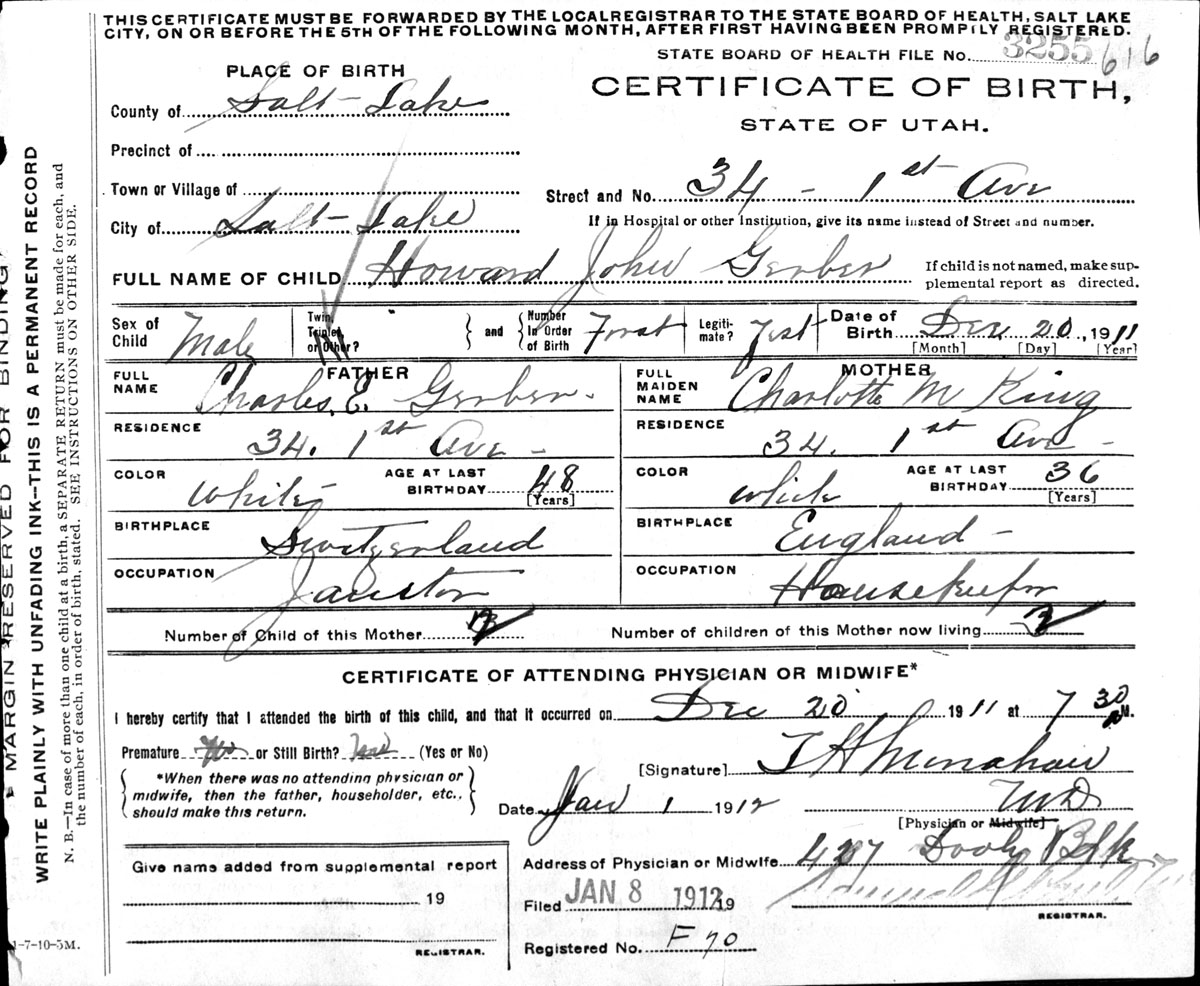 THIS CERTIFICATE MUST BE FORWARDED BY THE LOCAL REGISTRAR TO THE STATE BOARD OF HEALTH, SALT LAKE
CITY, ON OR BEFORE THE 5TH OF THE FOLLOWING MONTH, AFTER FIRST HAVING BEEN PROMPTLY REGISTERED.
STATE BOARD OF HEALTH FILE No. 3255 616
PLACE OF BIRTH
CERTIFICATE OF BIRTH,
STATE OF UTAH.
County of Salt Lake
Precinct of
Town or Village of
Street and No. 34 - 1st Ave
City of Salt Lake
If in Hospital or other Institution, give its name instead of Street and number.
FULL NAME OF CHILD Howard John Gerber
If child is not named, make sup-
plemental report as directed.
Sex of Child Male
Twin, Triplet, or Other?
and
Number In Order of Birth First
Legiti-mate?
Date of Birth Dec 20, 1911
[Month] [Day] [Year]
FATHER
FULL NAME Charles. E. Gerber.
RESIDENCE 34. 1st Ave -
COLOR White
AGE AT LAST BIRTHDAY 48
[Years]
BIRTHPLACE Switzerland
OCCUPATION
MOTHER
FULL MAIDEN NAME Charlotte M King
RESIDENCE 34. 1st Ave -
COLOR White
AGE AT LAST BIRTHDAY 36
[Years]
BIRTHPLACE England -
OCCUPATION Housekeeper
Number of Child of this Mother
Number of children of this Mother now living
CERTIFICATE OF ATTENDING PHYSICIAN OR MIDWIFE*
I hereby certify that I attended the birth of this child, and that it occurred on Dec 20 1911 at 7 30 M.
Premature No or Still Birth? (Yes or No)
*When there was no attending physician or
midwife, then the father, householder, etc.,
should make this return.
[Signature] T H Monahan
MD
[Physician or Midwife]
Date Jan 1 1912
Address of Physician or Midwife 427 Dooly Blk
Give name added from supplemental report
19
REGISTRAR.
Filed JAN 8 1912 19
REGISTRAR.
Registered No. F 70
1-7-10-5M.
MARGIN RESERVED FOR BINDING
WRITE PLAINLY WITH UNFADING INK—THIS IS A PERMANENT RECORD
N. B.—In case of more than one child at a birth, a SEPARATE RETURN must be made for each, and
the number of each, in order of birth, stated. SEE INSTRUCTIONS ON OTHER SIDE.